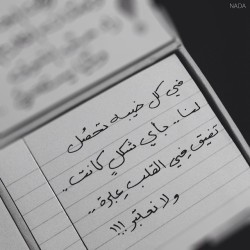 NADA
في كل خيبه تحصُل
لنا.. جاي شكلٍ كانت..
تفيق فِي القلب عِبرة..
ولا نعتبر !!!